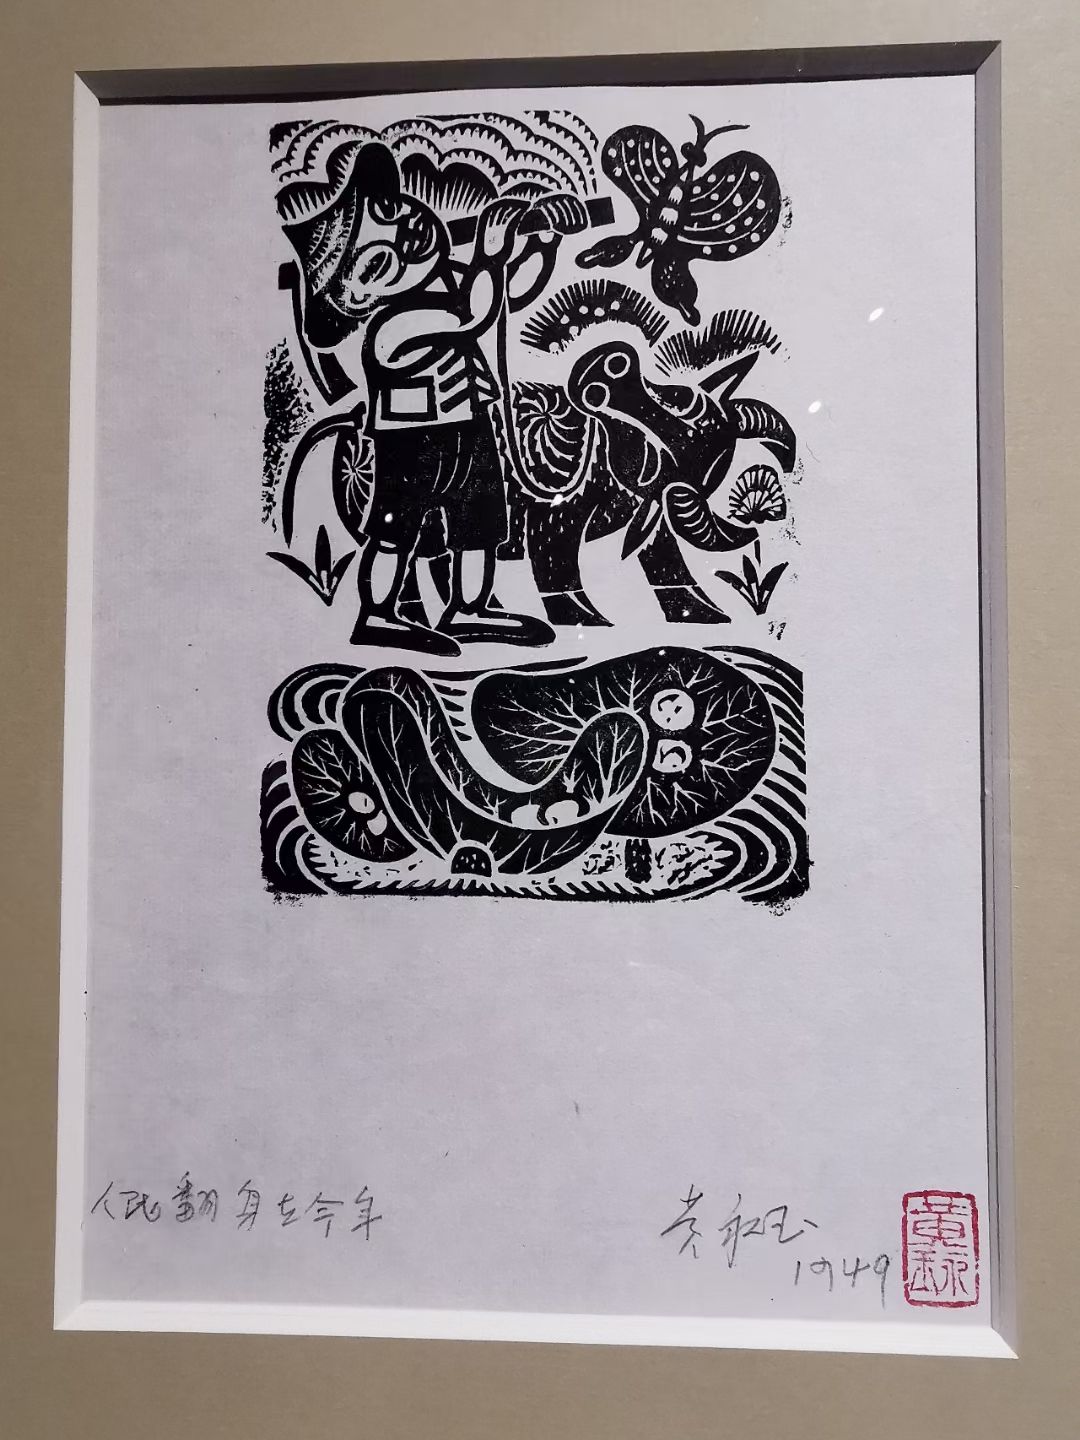 人民翻身在今年
黄永玉
1949
黄
永玉